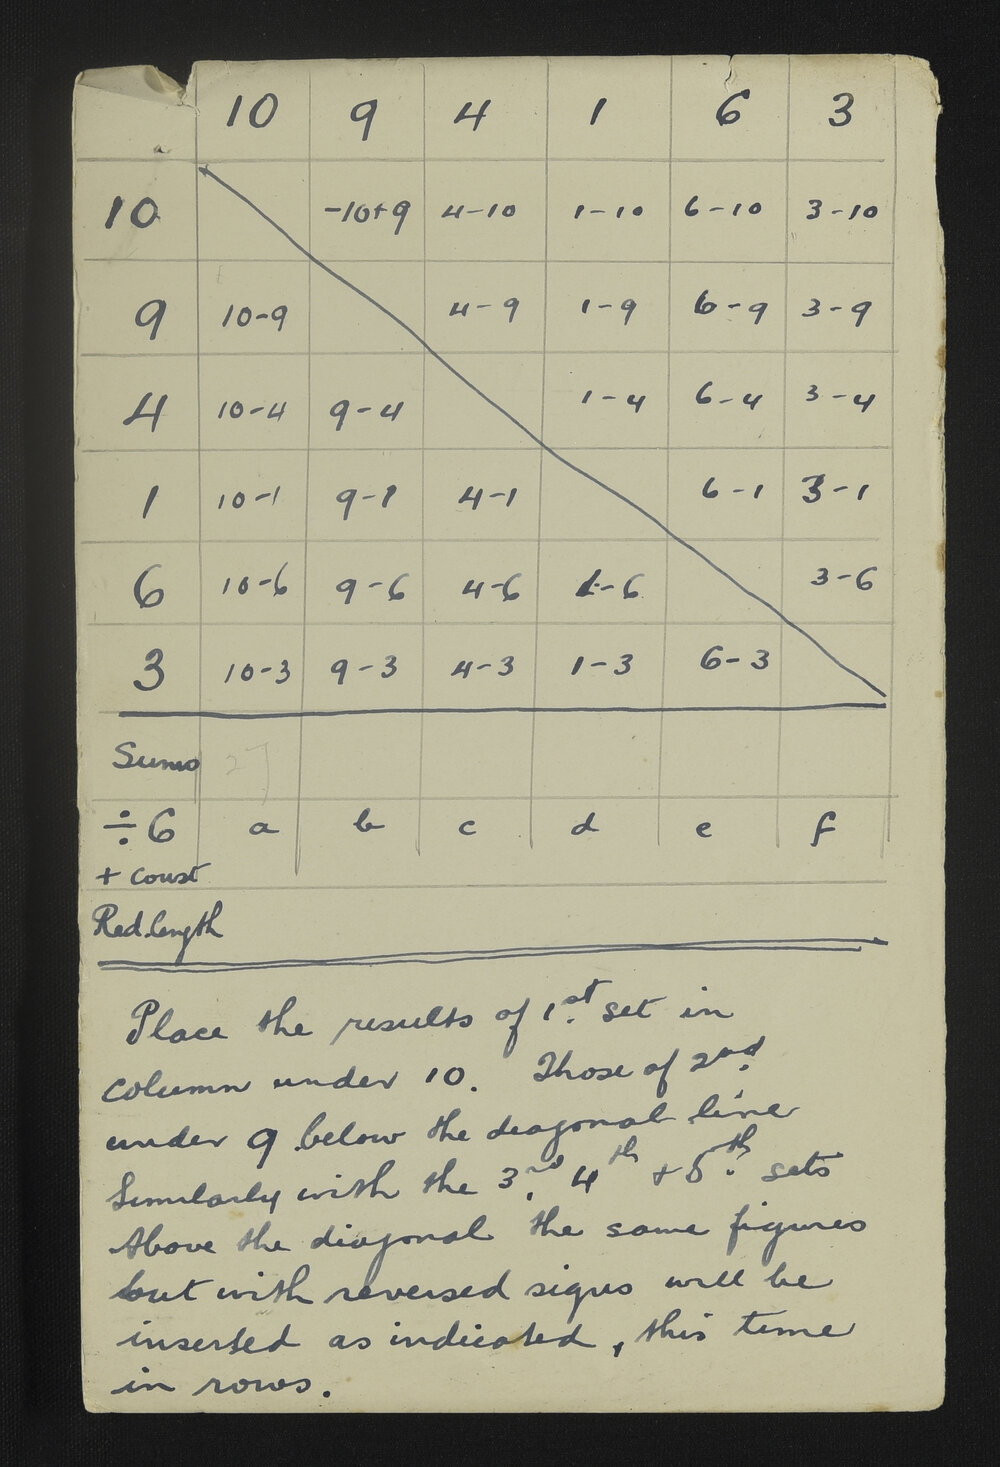 10 9 4 1 6 3
10 -10+9 4-10 1-10 6-10 3-10
9 10-9 4-9 1-9 6-9 3-9
4 10-4 9-4 1-4 6-4 3-4
1 10-1 9-1 4-1 6-1 3-1
6 10-6 9-6 4-6 1-6 3-6
3 10-3 9-3 4-3 1-3 6-3
Sums 27
÷6 a b c d e f
+ const
Red. length
Place the results of 1st. set in
column under 10. Those of 2nd.
under 9 below the diagonal line
Similarly with the 3rd. 4th + 5th. sets
Above the diagonal the same figures
but with reversed signs will be
inserted as indicated, this time
in rows.